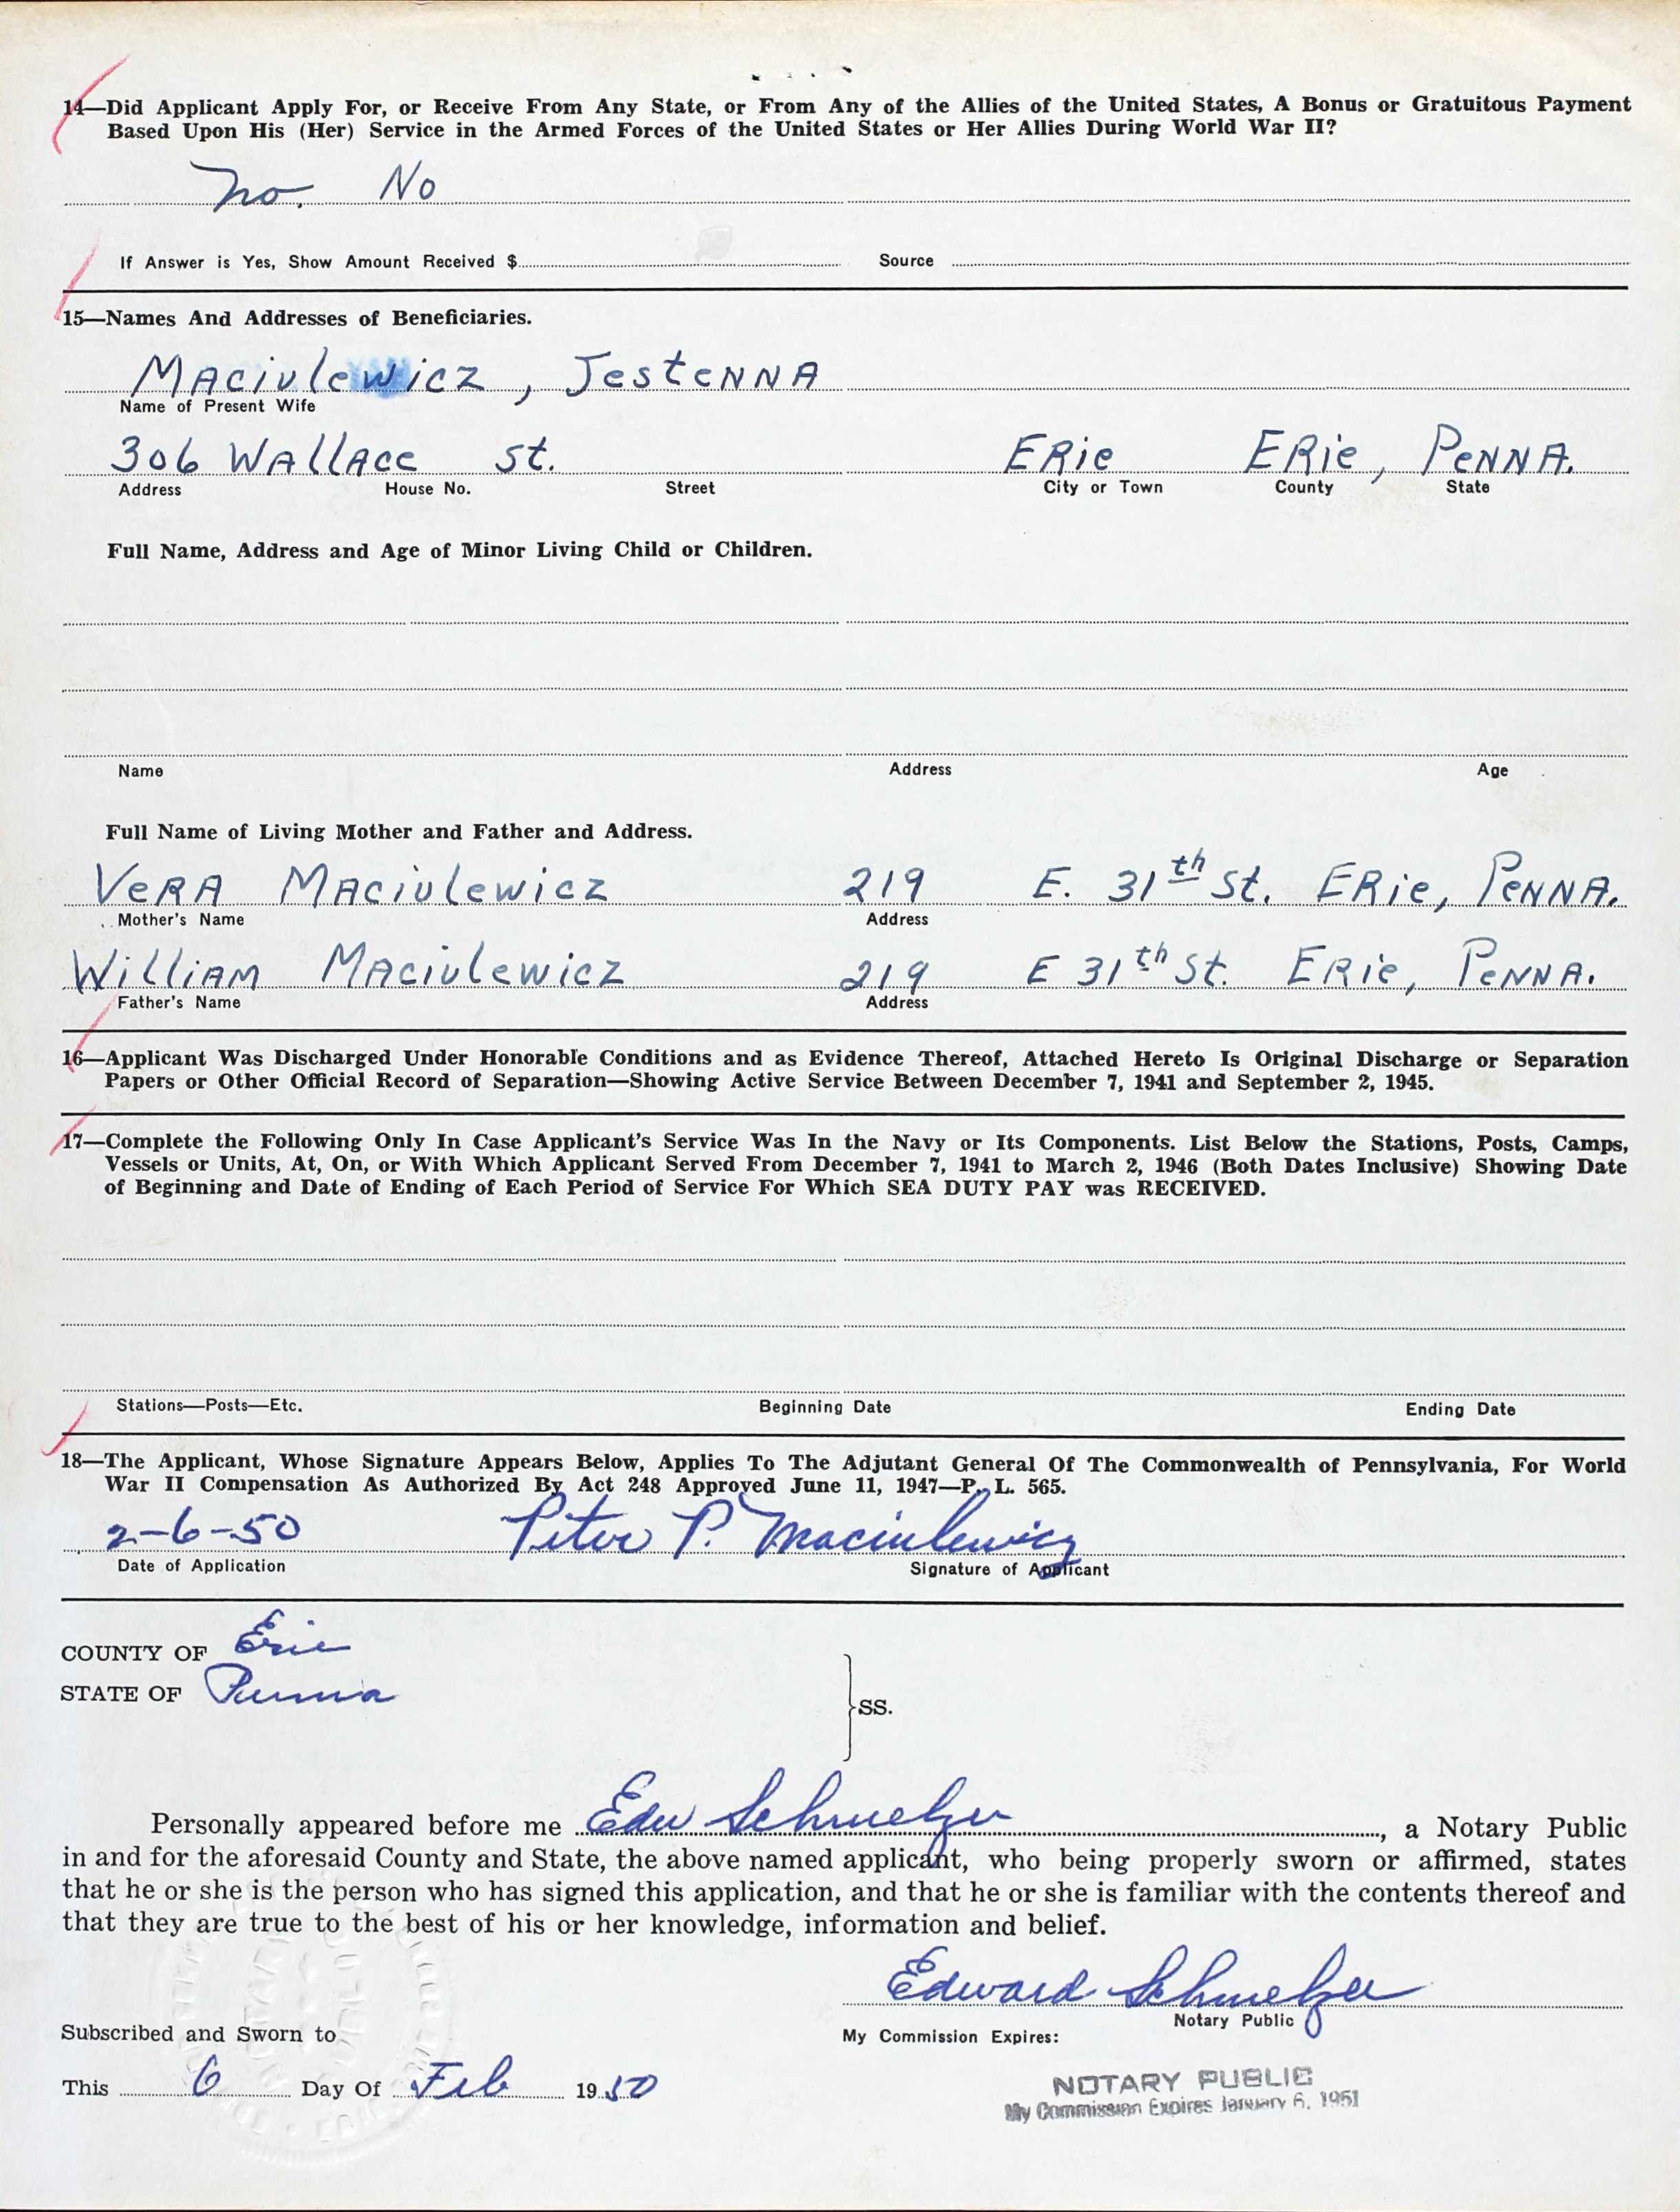 14—Did Applicant Apply For, or Receive From Any State, or From Any of the Allies of the United States, A Bonus or Gratuitous Payment
Based Upon His (Her) Service in the Armed Forces of the United States or Her Allies During World War II?
no. No
If Answer is Yes, Show Amount Received $ Source
15—Names And Addresses of Beneficiaries.
Maciulewicz, Jestenna
Name of Present Wife
306 Wallace st. Erie Erie, Penna.
Address House No. Street City or Town County State
Full Name, Address and Age of Minor Living Child or Children.
Name Address Age
Full Name of Living Mother and Father and Address.
Vera Maciulewicz 219 E. 31th St. Erie, Penna.
Mother's Name Address
William Maciulewicz 219 E 31th St. Erie, Penna.
Father's Name Address
16—Applicant Was Discharged Under Honorable Conditions and as Evidence Thereof, Attached Hereto Is Original Discharge or Separation
Papers or Other Official Record of Separation—Showing Active Service Between December 7, 1941 and September 2, 1945.
17—Complete the Following Only In Case Applicant's Service Was In the Navy or Its Components. List Below the Stations, Posts, Camps,
Vessels or Units, At, On, or With Which Applicant Served From December 7, 1941 to March 2, 1946 (Both Dates Inclusive) Showing Date
of Beginning and Date of Ending of Each Period of Service For Which SEA DUTY PAY was RECEIVED.
Stations—Posts—Etc. Beginning Date Ending Date
18—The Applicant, Whose Signature Appears Below, Applies To The Adjutant General Of The Commonwealth of Pennsylvania, For World
War II Compensation As Authorized By Act 248 Approved June 11, 1947—P. L. 565.
2-6-50 Peter P. Maciulewicz
Date of Application Signature of Applicant
COUNTY OF Erie
STATE OF Penna
SS.
Personally appeared before me Edw Schmelzer, a Notary Public
in and for the aforesaid County and State, the above named applicant, who being properly sworn or affirmed, states
that he or she is the person who has signed this application, and that he or she is familiar with the contents thereof and
that they are true to the best of his or her knowledge, information and belief.
Edward Schmelzer
Notary Public
Subscribed and Sworn to My Commission Expires:
This 6 Day Of Feb 1950
NOTARY PUBLIC
My Commission Expires January 6, 1951